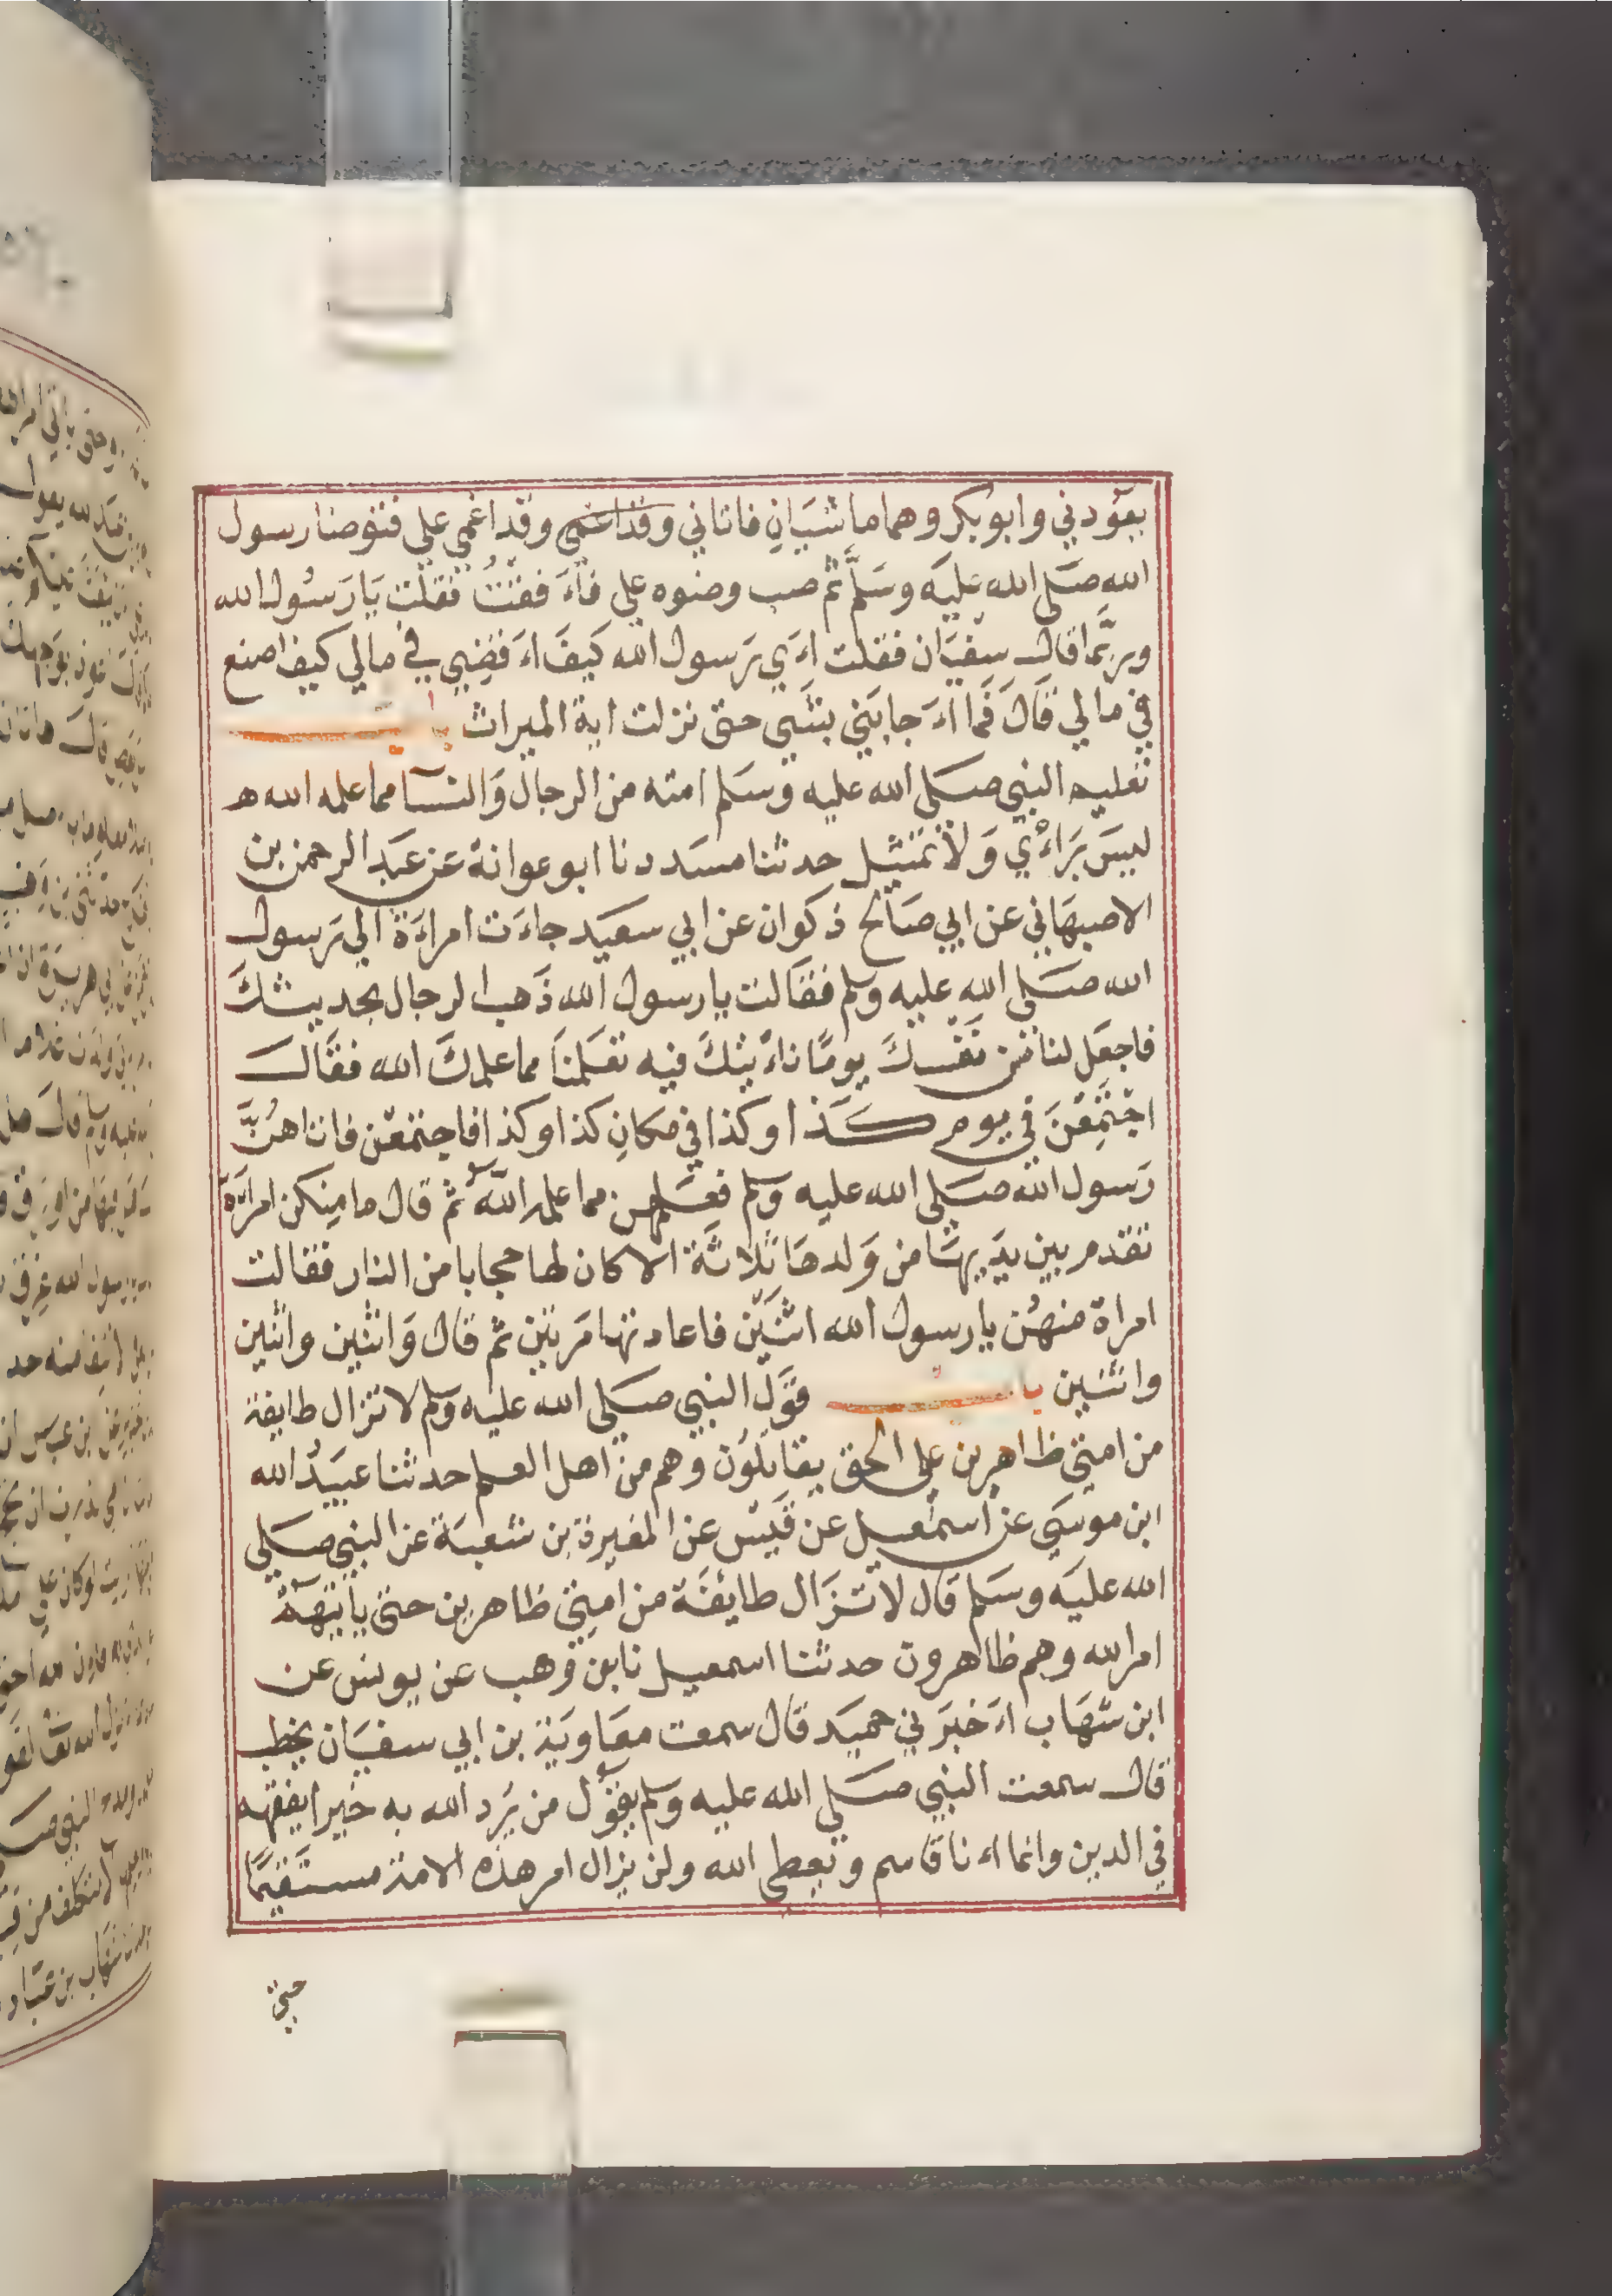 يعودني وابوبكر وهما ماشيان فاتاني وقد اغمي وقد اغمي علي فتوضا رسول
الله صلى الله عليه وسلم ثم صب وضوه علي فاءفقت فقلت يا رسول الله
وربما قال سفيان فقلت اءي رسول الله كيف اءقضي في مالي كيف اصنع
في مالي قال فما اءجابني بشي حتى نزلت اية الميراث باب
تعليم النبي صلى الله عليه وسلم امته من الرجال والنسا مما علمه الله
ليس براءي ولا تمثيل حدثنا مسدد نا ابو عوانة عن عبد الرحمن بن
الاصبهاني عن ابي صالح ذكوان عن ابي سعيد جاءت امراءة الي رسول
الله صلى الله عليه وسلم فقالت يا رسول الله ذهب الرجال بحديثك
فاجعل لنا من نفسك يوما ناءتيك فيه تعلمنا مما علمك الله فقال
اجتمعن في يوم كذا وكذا في مكان كذا وكذا فاجتمعن فاتاهن
رسول الله صلى الله عليه وسلم فعلمهن مما علمه الله ثم قال ما منكن امراءة
تقدم بين يديها من ولدها ثلاثة الا كان لها حجابا من النار فقالت
امراة منهن يا رسول الله اثنين فاعادتها مرتين ثم قال واثنين واثنين
واثنين باب قول النبي صلى الله عليه وسلم لا تزال طايفة
من امتي ظاهرين على الحق يقاتلون وهم من اهل العلم حدثنا عبيد الله
ابن موسى عن اسمعيل عن قيس عن المغيرة بن شعبة عن النبي صلى
الله عليه وسلم قال لا تزال طايفة من امتي ظاهرين حتى ياتيهم
امر الله وهم ظاهرون حدثنا اسمعيل نا بن وهب عن يونس عن
ابن شهاب اءخبرني حميد قال سمعت معاوية بن ابي سفيان يخطب
قال سمعت النبي صلى الله عليه وسلم يقول من يرد الله به خيرا يفقهه
في الدين وانما اءنا قاسم ويعطي الله ولن يزال امر هذه الامة مستقيما
حتى